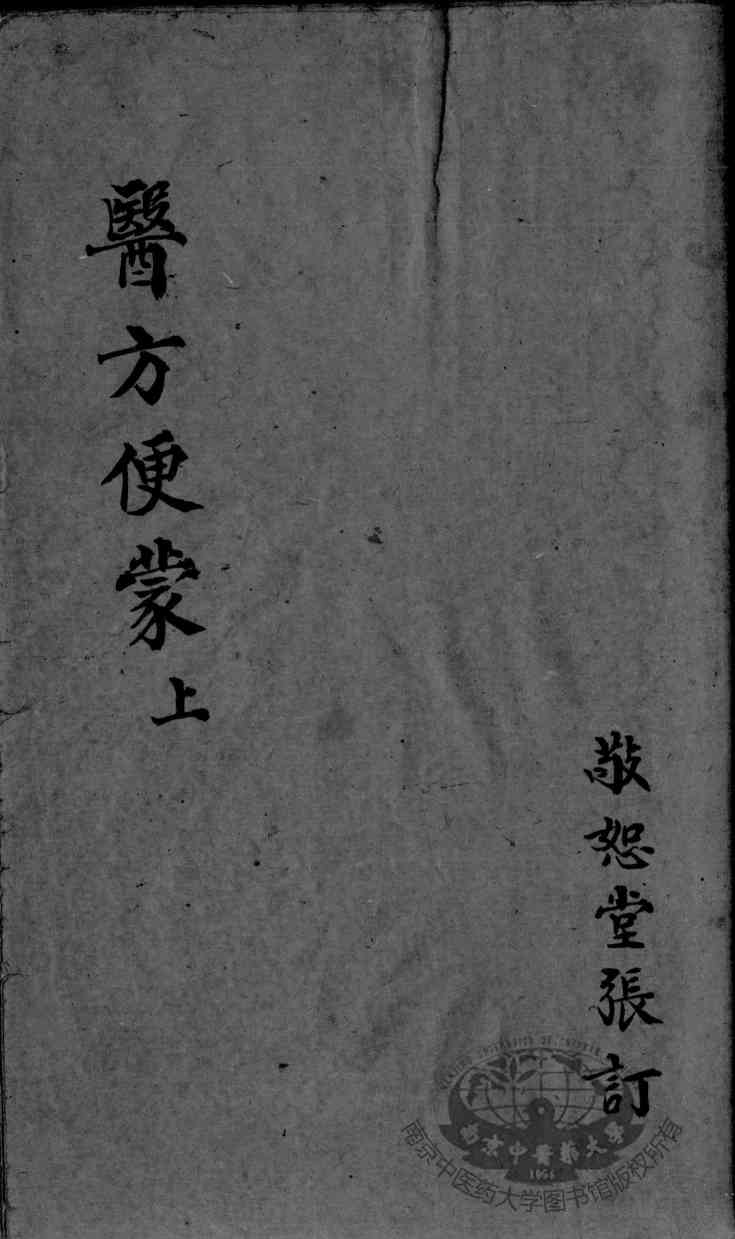 敬恕堂張訂
醫方便蒙上
南京中醫藥大學
1954
南京中医药大学图书馆版权所有